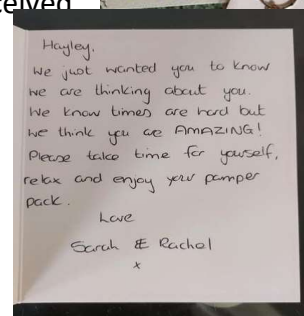 ceived
Hayley,
We just wanted you to know
we are thinking about you.
We know times are hard but
we think you are AMAZING!
Please take time for yourself,
relax and enjoy your pamper
pack.
Love
Sarah & Rachel
x